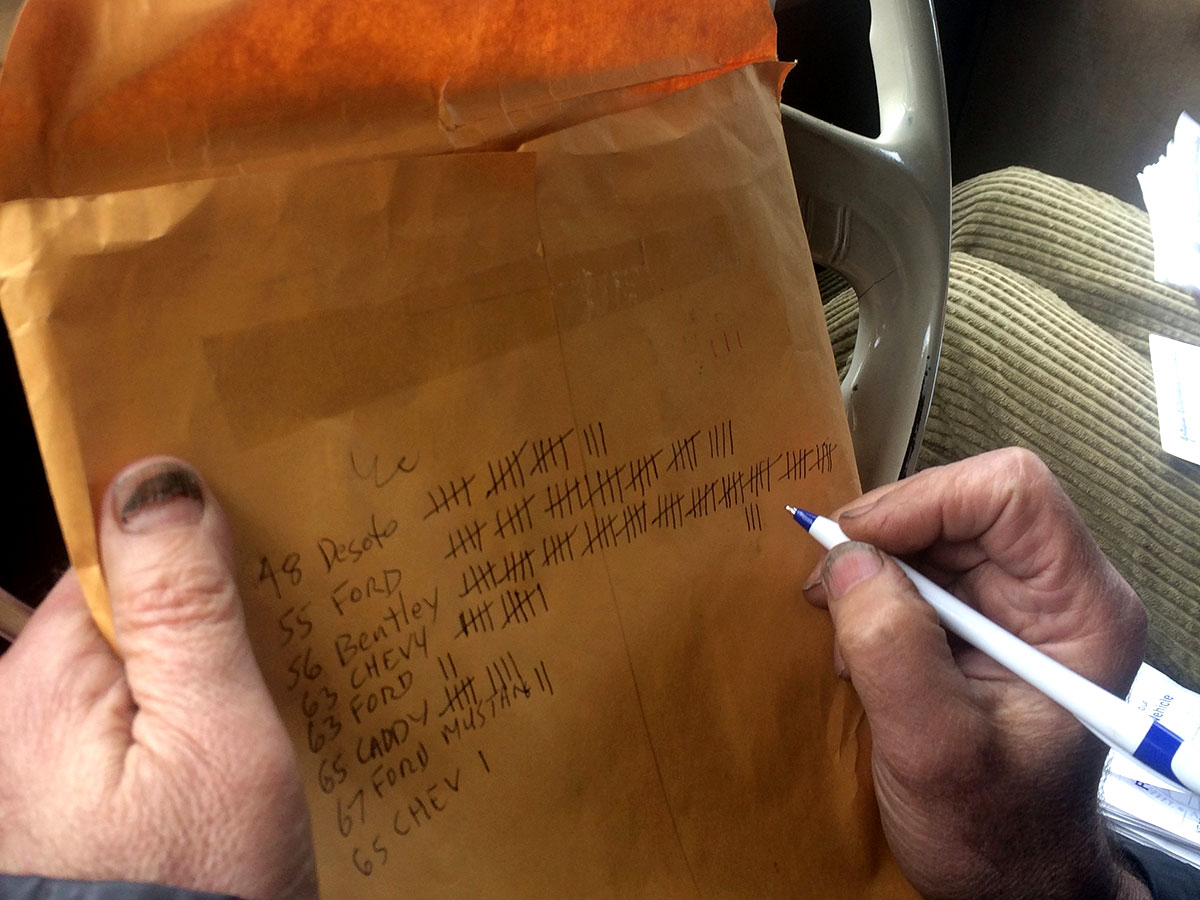 48 Desoto
55 FORD
56 Bentley
63 CHEVY
63 FORD
65 CADDY
67 FORD MUSTAN
65 CHEV
Vehicle